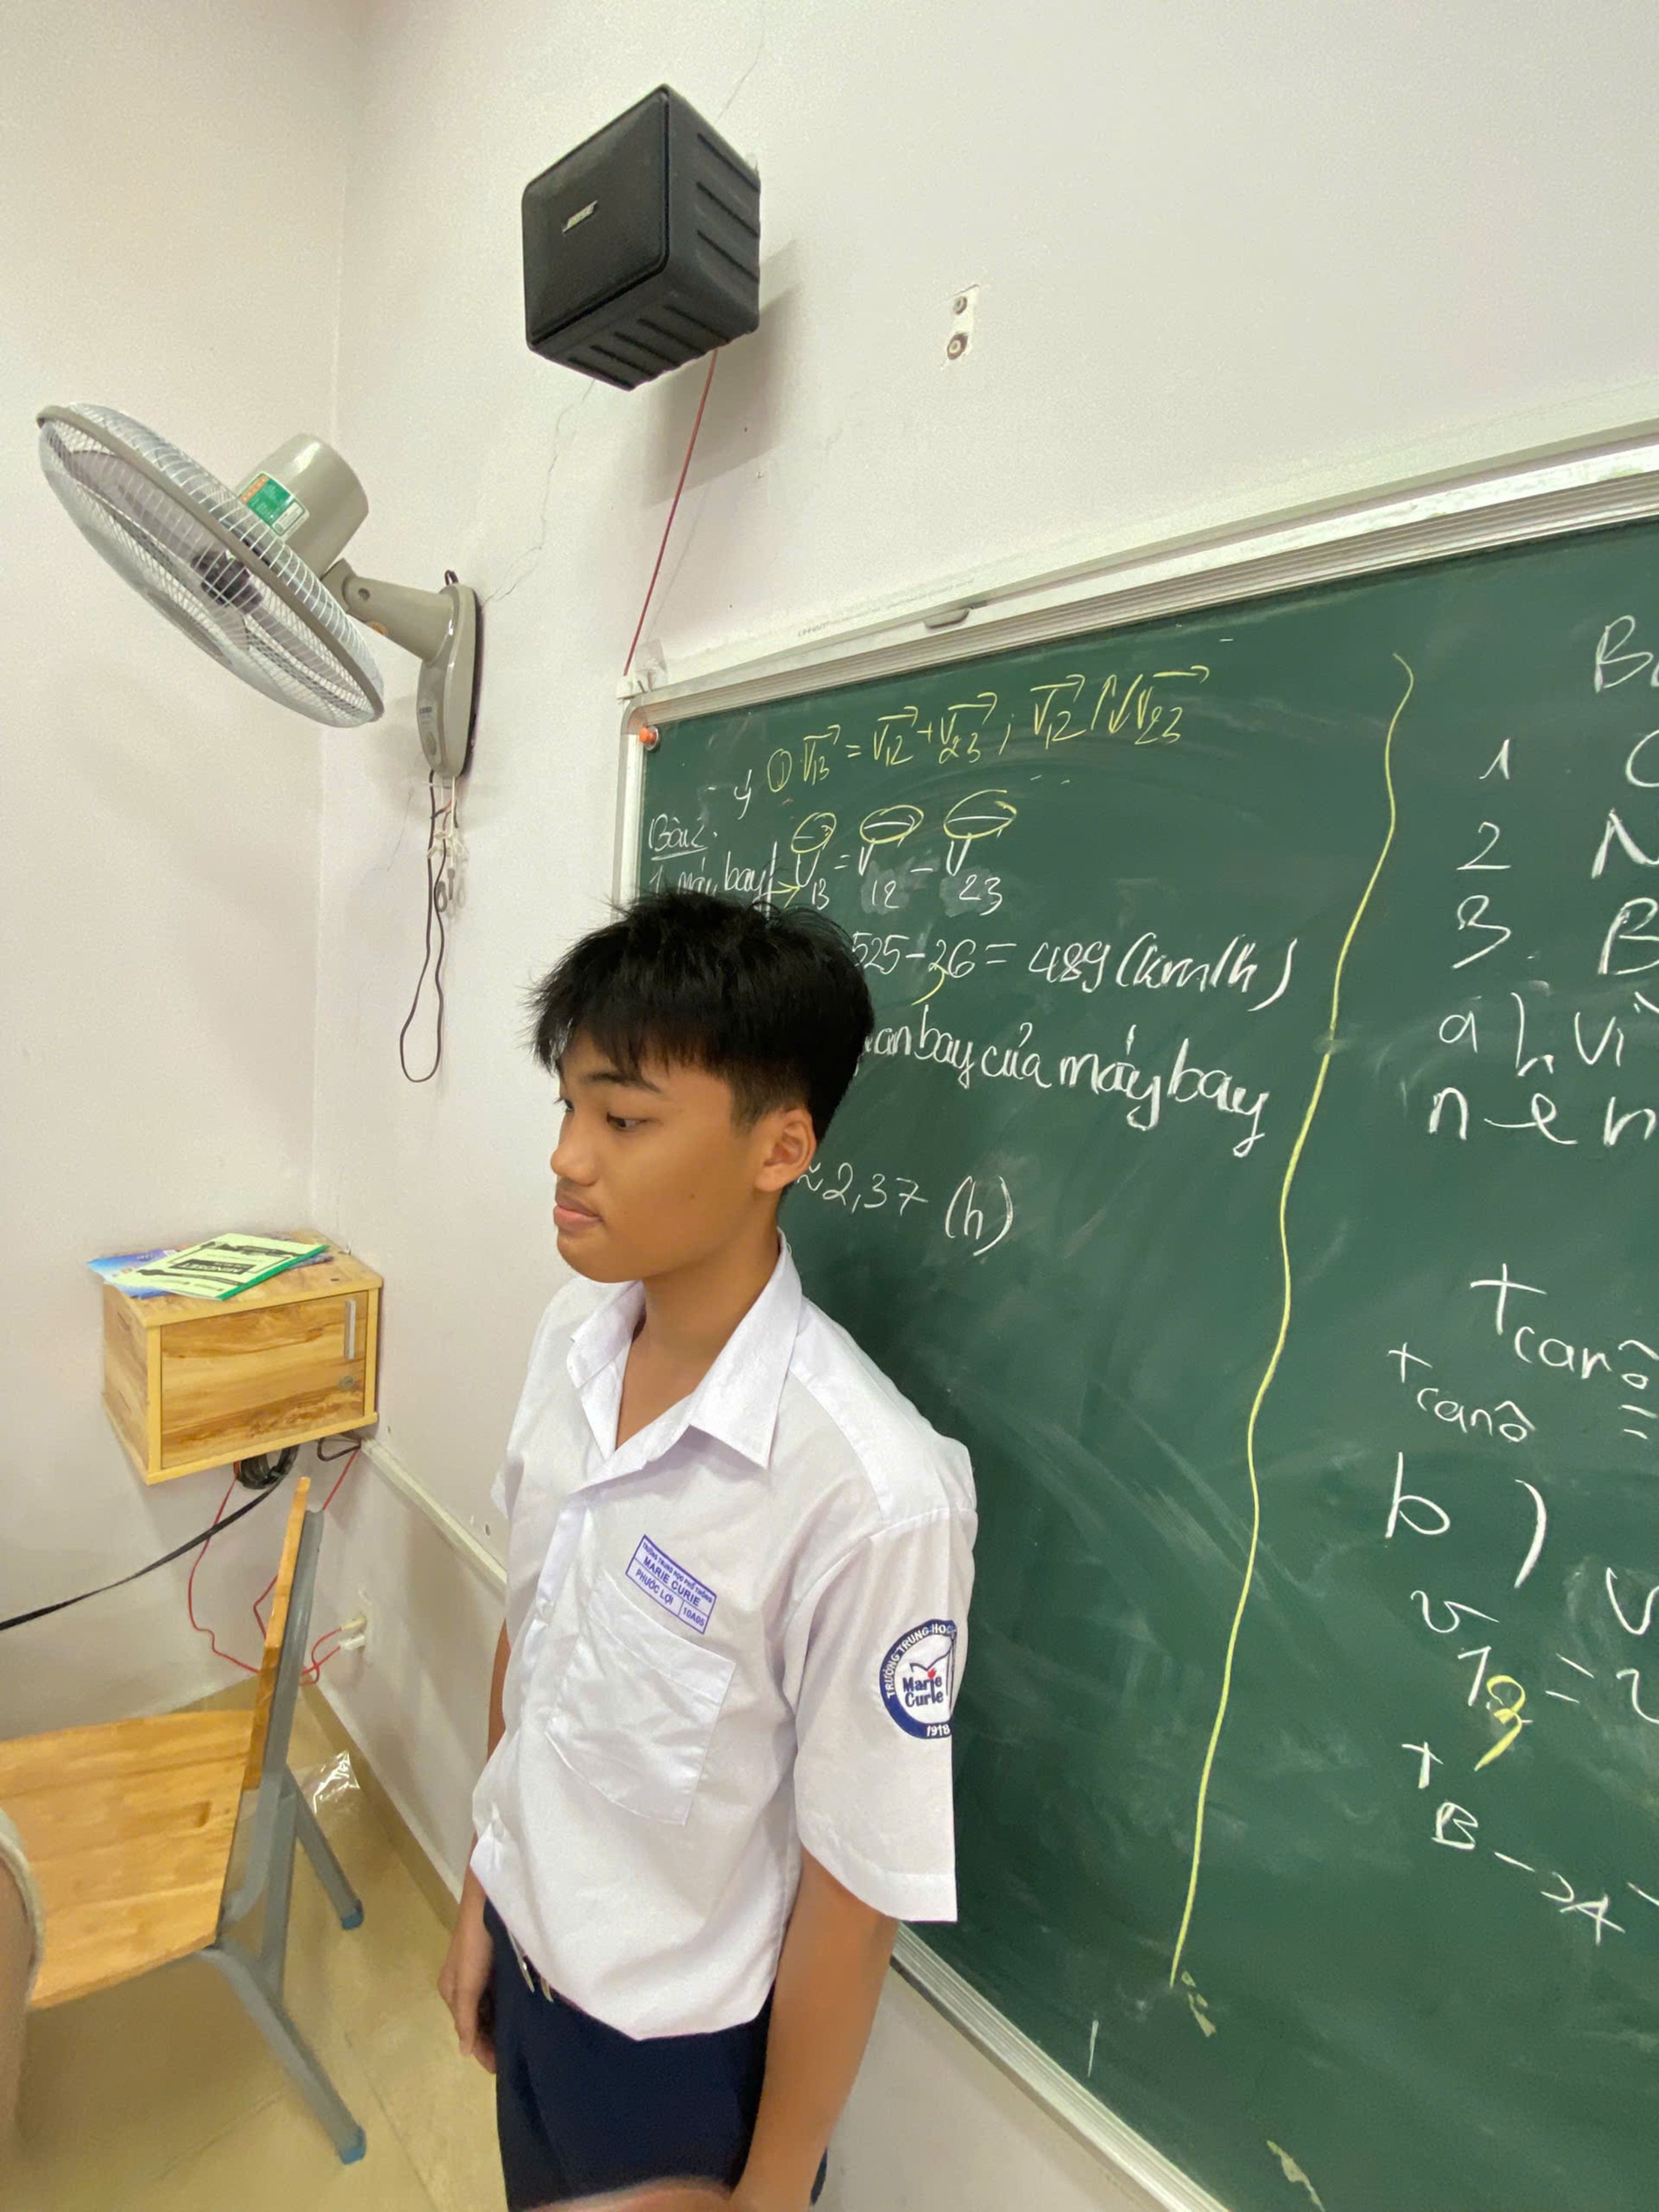 BOSE
ý ① V13 = V12 + V23 ; V12 ↑↓ V23
Bài 2:
1. máy bay
V13 = V12 - V23
525 - 36 = 489 (km/h)
bay của máy bay
≈ 2,37 (h)
1
2
3
a), vì
nên
t canô
t canô =
b)
v13 =
t B → A
TRƯỜNG TRUNG HỌC PHỔ THÔNG
MARIE CURIE
PHƯỚC LỢI 10A05
TRƯỜNG TRUNG HỌC
Marie
Curie
1918
MINDSET